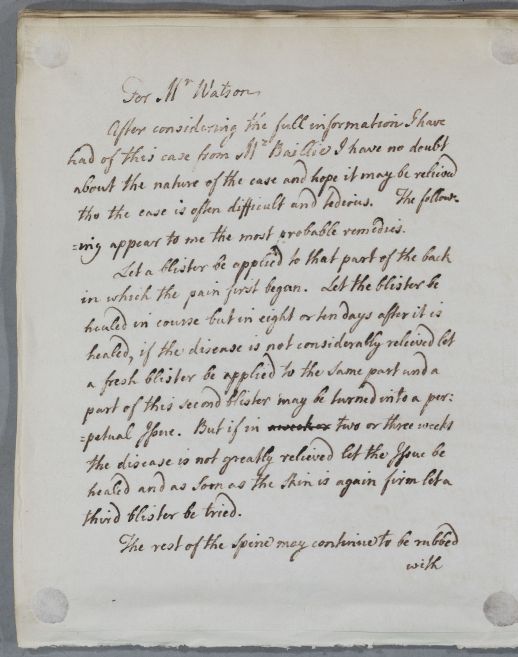 For Mr Watson
After considering the full information I have
had of this case from Mr Baillie I have no doubt
about the nature of the case and hope it may be relieved
tho the case is often difficult and tedious. The follow-
=ing appear to me the most probable remedies.
Let a blister be applied to that part of the back
in which the pain first began. Let the blister be
healed in course but in eight or ten days after it is
healed, if the disease is not considerably relieved let
a fresh blister be applied to the same part and a
part of this second blister may be turned into a per=
=petual Issue. But if in two or three weeks
the disease is not greatly relieved let the Issue be
healed and as soon as the skin is again firm let a
third blister be tried.
The rest of the spine may continue to be rubbed
with